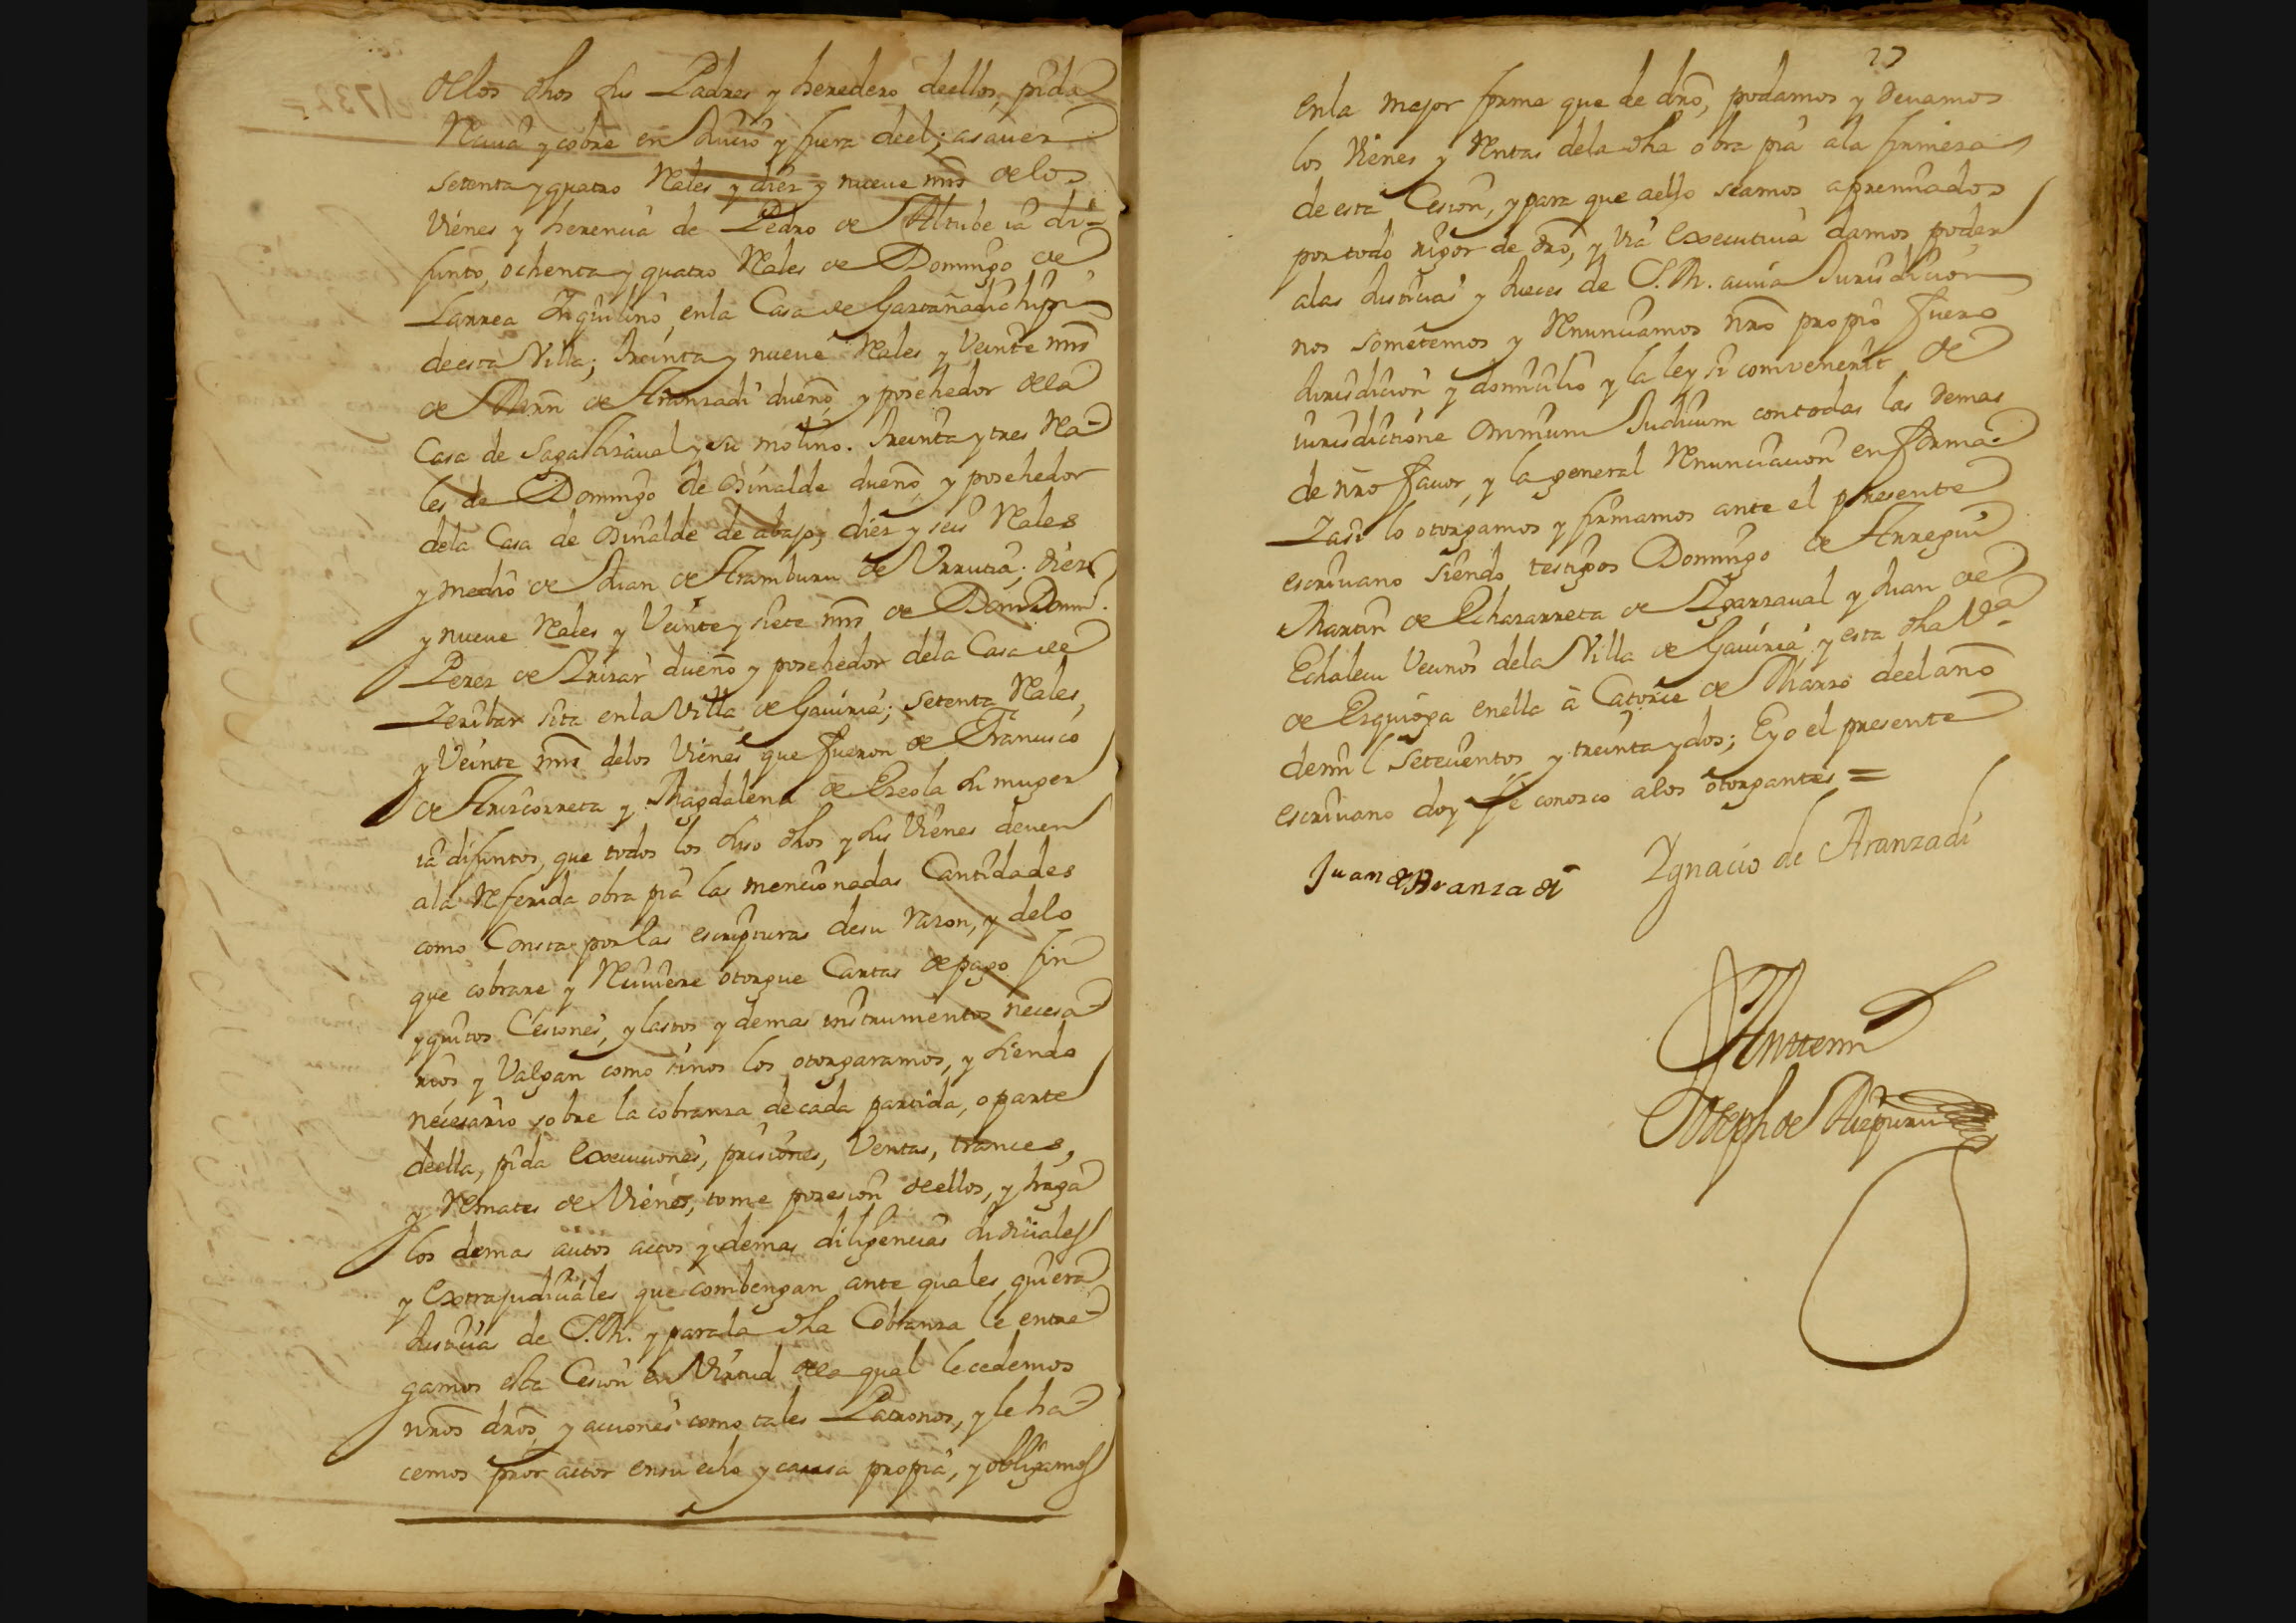 delos dhos sus Padres y heredero deellos, pida
Reciua y cobre en Juicio y fuera deel; asauer
setenta y quatro Reales y diez y nueue mrs delos
Vienes y herencia de Pedro de Altube ia di-
funto, ochenta y quatro Reales de Domingo de
Larrea Inquilino enla Casa de
deesta Villa; treinta y nueue Reales y Veinte mrs
de Mrn de Aranzadi dueño y posehedor dela
Casa de Sagastizaual y su molino. treinta y tres Rea-
les de Domingo de Oinalde dueño y posehedor
dela Casa de Oinalde de abajo, diez y seis Reales
y medio de Juan de Aramburu de Urrutia; diez
y nueue Reales y Veinte y siete mrs de Dom
Perez de Irizar dueño y posehedor dela Casa de
Zeribar sita enla Villa de Gauiria; setenta Reales,
y Veinte mrs delos Vienes que fueron de Francisco
de Arizcorreta y Magdalena de Ezeola su muger
ia difuntos, que todos los suso dhos y sus Vienes deuen
ala Referida obra pia las mencionadas Cantidades
como Consta por las escripturas desu razon, y delo
que cobrare y Reciuiere otorgue Cartas de pago fin
y quitos Cesiones, y lastos y demas instrumentos necesa-
rios, y Valgan como sinos los otorgaramos, y siendo
necesario sobre la cobranza de cada partida, o parte
deella, pida execuciones, prisiones, Ventas, trances,
y Remates de Vienes, tome posesion deellos, y haga
los demas autos actos y demas diligencias Judiciales
y extrajudiciales que combengan ante quales quiera
Justicias de S.M. y parala dha Cobranza le entre-
gamos esta Cesion en Virtud dela qual le cedemos
nros dros, y acciones como tales Patronos, y le ha-
cemos pror actor ensu echo y causa propia, y obligamos
27
enla mejor forma que de dro, podamos y deuamos
los Vienes y Rentas dela dha obra pia ala firmeza
de esta Cesion, y para que aello seamos apremiados
por todo rigor de dro, y via executiua damos poder
alas Justicias y Jueces de S.M. acuia Jurisdicion
nos sometemos y Renunciamos nro propio fuero
Jurisdicion y domicilio y la ley si combenerit de
iurisdictione Omnium Judicum contodas las demas
de nro fauor, y la general Renunciacion en forma.
Iasi lo otorgamos y firmamos ante el presente
escriuano siendo testigos Domingo de Arregui
Martin de Echazarreta de Igarzaual y Juan de
Echaleu Vecinos dela Villa de Gauiria y esta dha Va
de Ezquioga enella à Catorce de Marzo deelaño
demil Setecientos y treinta y dos; E yo el presente
escriuano doy fe conosco alos otorgantes =
Juan de Aranzadi
Ygnacio de Aranzadi
Antemi
Joseph de Aizpuru